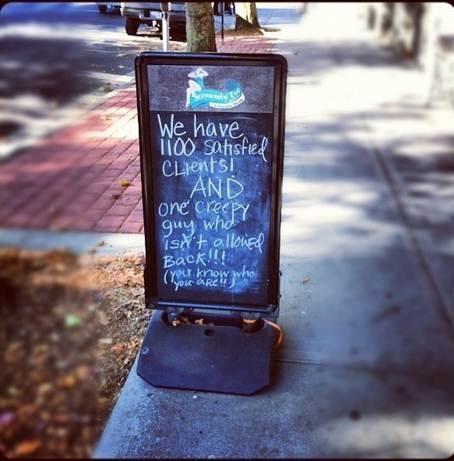 We have
1100 satisfied
CLients!
AND
one creepy
guy who
isn't allowed
BACK!!!
(you know who
you aRe!!)